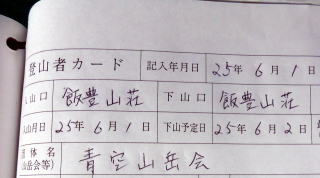 登山者カード 記入年月日 25年 6月 1日
入山口 飯豊山荘 下山口 飯豊山荘
入山月日 25年 6月 1日 下山予定日 25年 6月 2日
団体名 青空山岳会
山岳会等)